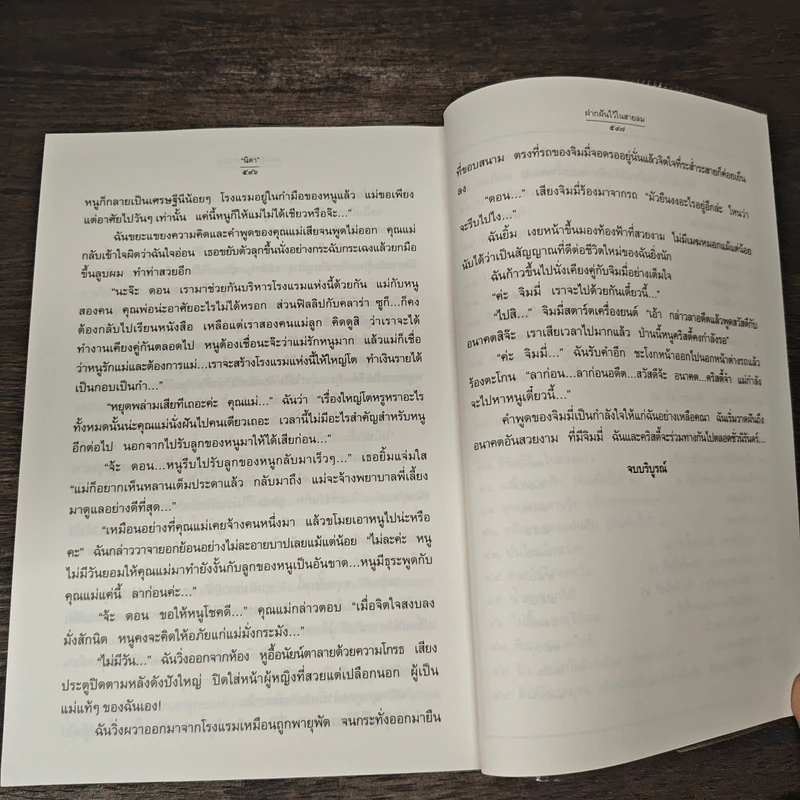 "นิดา"
๕๙๖
หนูก็กลายเป็นเศรษฐีนีน้อยๆ โรงแรมอยู่ในกำมือของหนูแล้ว แม่ขอเพียง
แต่อาศัยไปวันๆ เท่านั้น แค่นี้หนูก็ให้แม่ไม่ได้เชียวหรือจ๊ะ..."
ฉันขยะแขยงความคิดและคำพูดของคุณแม่เสียจนพูดไม่ออก คุณแม่
กลับเข้าใจผิดว่าฉันใจอ่อน เธอขยับตัวลุกขึ้นนั่งอย่างกระฉับกระเฉงแล้วยกมือ
ขึ้นลูบผม ทำท่าสวยอีก
"นะจ๊ะ ดอน เรามาช่วยกันบริหารโรงแรมแห่งนี้ด้วยกัน แม่กับหนู
สองคน คุณพ่อน่ะอาศัยอะไรไม่ได้หรอก ส่วนฟิลลิปกับคลาร่า ซูก็...ก็คง
ต้องกลับไปเรียนหนังสือ เหลือแต่เราสองคนแม่ลูก คิดดูสิ ว่าเราจะได้
ทำงานเคียงคู่กันตลอดไป หนูต้องเชื่อนะจ๊ะว่าแม่รักหนูมาก แล้วแม่ก็เชื่อ
ว่าหนูรักแม่และต้องการแม่...เราจะสร้างโรงแรมแห่งนี้ให้ใหญ่โต ทำเงินรายได้
เป็นกอบเป็นกำ..."
"หยุดพล่ามเสียทีเถอะค่ะ คุณแม่..." ฉันว่า "เรื่องใหญ่โตหรูหราอะไร
ทั้งหมดนั้นน่ะคุณแม่นั่งฝันไปคนเดียวเถอะ เวลานี้ไม่มีอะไรสำคัญสำหรับหนู
อีกต่อไป นอกจากไปรับลูกของหนูมาให้ได้เสียก่อน..."
"จ้ะ ดอน...หนูรีบไปรับลูกของหนูกลับมาเร็วๆ..." เธอยิ้มแจ่มใส
"แม่ก็อยากเห็นหลานเต็มประดาแล้ว กลับมาถึง แม่จะจ้างพยาบาลพี่เลี้ยง
มาดูแลอย่างดีที่สุด..."
"เหมือนอย่างที่คุณแม่เคยจ้างคนหนึ่งมา แล้วขโมยเอาหนูไปน่ะหรือ
คะ" ฉันกล่าววาจายอกย้อนอย่างไม่ละอายบาปเลยแม้แต่น้อย "ไม่ละค่ะ หนู
ไม่มีวันยอมให้คุณแม่มาทำยังงั้นกับลูกของหนูเป็นอันขาด...หนูมีธุระพูดกับ
คุณแม่แค่นี้ ลาก่อนค่ะ..."
"จ้ะ ดอน ขอให้หนูโชคดี..." คุณแม่กล่าวตอบ "เมื่อจิตใจสงบลง
มั่งสักนิด หนูคงจะคิดให้อภัยแก่แม่มั่งกระมัง..."
"ไม่มีวัน..." ฉันวิ่งออกจากห้อง หูอื้อนัยน์ตาลายด้วยความโกรธ เสียง
ประตูปิดตามหลังดังปังใหญ่ ปิดใส่หน้าผู้หญิงที่สวยแต่เปลือกนอก ผู้เป็น
แม่แท้ๆ ของฉันเอง!
ฉันวิ่งผวาออกมาจากโรงแรมเหมือนถูกพายุพัด จนกระทั่งออกมายืน
ฝากฝันไว้ในสายลม
๕๙๗
ที่ขอบสนาม ตรงที่รถของจิมมี่จอดรออยู่นั่นแล้วจิตใจที่ระส่ำระสายก็ค่อยเย็น
ลง
"ดอน..." เสียงจิมมี่ร้องมาจากรถ "มัวยืนงงอะไรอยู่อีกล่ะ ไหนว่า
จะรีบไปไง..."
ฉันยิ้ม เงยหน้าขึ้นมองท้องฟ้าที่สวยงาม ไม่มีเมฆหมอกแม้แต่น้อย
นับได้ว่าเป็นสัญญาณที่ดีต่อชีวิตใหม่ของฉันยิ่งนัก
ฉันก้าวขึ้นไปนั่งเคียงคู่กับจิมมี่อย่างเต็มใจ
"ค่ะ จิมมี่ เราจะไปด้วยกันเดี๋ยวนี้..."
"ไปสิ..." จิมมี่สตาร์ตเครื่องยนต์ "เอ้า กล่าวลาอดีตแล้วพูดสวัสดีกับ
อนาคตสิจ๊ะ เราเสียเวลาไปมากแล้ว ป่านนี้หนูคริสตี้คงกำลังรอ"
"ค่ะ จิมมี่..." ฉันรับคำอีก ชะโงกหน้าออกไปนอกหน้าต่างรถแล้ว
ร้องตะโกน "ลาก่อน...ลาก่อนอดีต...สวัสดีจ้ะ อนาคต...คริสตี้จ๋า แม่กำลัง
จะไปหาหนูเดี๋ยวนี้..."
คำพูดของจิมมี่เป็นกำลังใจให้แก่ฉันอย่างเหลือคณา ฉันเริ่มวาดฝันถึง
อนาคตอันสวยงาม ที่มีจิมมี่ ฉันและคริสตี้จะร่วมทางกันไปตลอดชั่วนิรันดร์...
จบบริบูรณ์